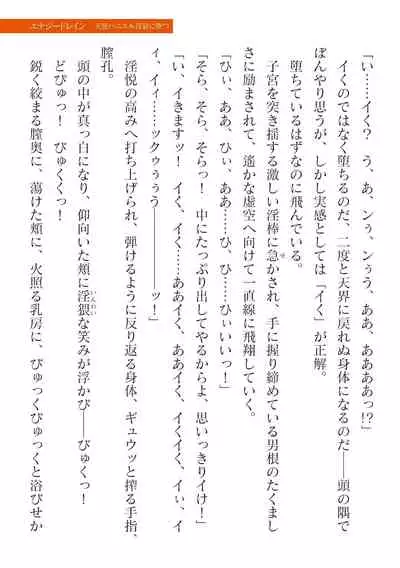 エナジードレイン
「い……イく？　う、あ、ンぅ、ンぅう、ああ、ああああっ!?」
イくのではなく堕ちるのだ、二度と天界に戻れぬ身体になるのだ――頭の隅で
ぼんやり思うが、しかし実感としては「イく」が正解。
堕ちているはずなのに飛んでいる。
子宮を突き揺する激しい淫棒に急かされ、手に握り締めている男根のたくまし
さに励まされて、遙かな虚空へ向けて一直線に飛翔していく。
「ひぃ、ああ、ひぃ、ああ……ひ、ひ……ひぃいいっ！」
「そら、そら、そらっ！　中にたっぷり出してやるからよ、思いっきりイけ！」
「い、イきますッ！　イく、イく……ああイく、ああイく、イくイく、イぃ、イ
ィ、イィ……ックゥぅぅう――――――ッ！」
淫悦の高みへ打ち上げられ、弾けるように反り返る身体、ギュウッと搾る手指、
膣孔。
頭の中が真っ白になり、仰向いた頬に淫猥な笑みが浮かび――びゅくっ！
どぴゅっ！　びゅくくっ！
鋭く絞まる膣奥に、蕩けた頬に、火照る乳房に、びゅっくびゅっくと浴びせか